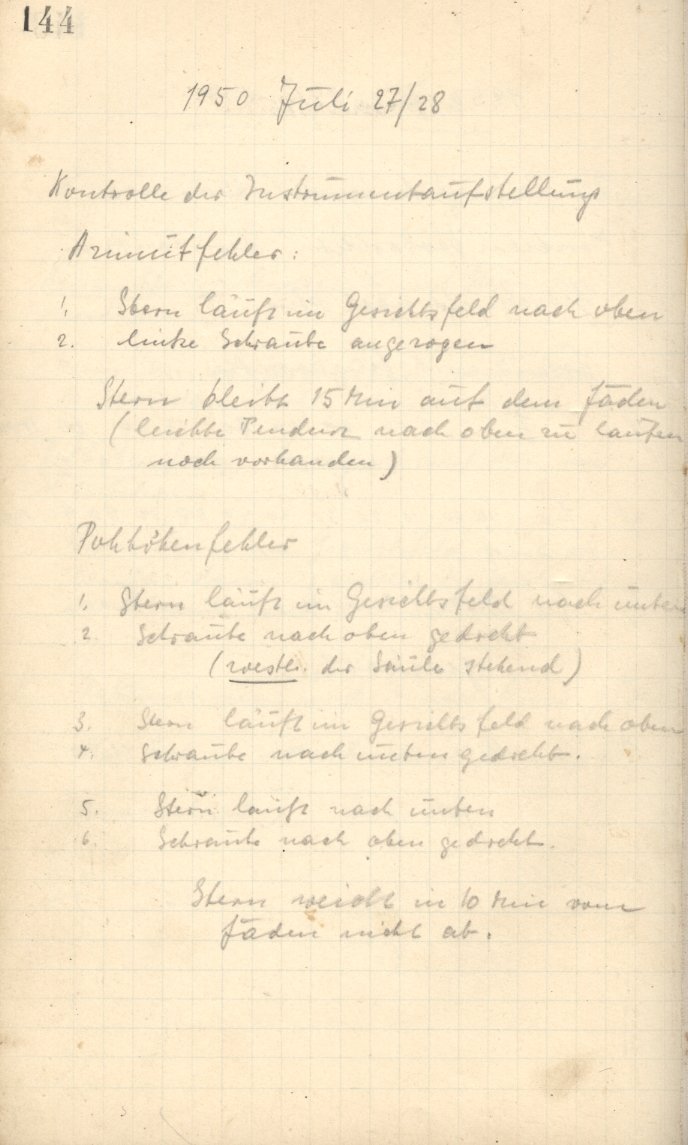 144
1950 Juli 27/28
Kontrolle der Instrumentaufstellung
Azimutfehler:
1. Stern läuft im Gesichtsfeld nach oben
2. linke Schraube angezogen
Stern bleibt 15 Min auf dem Faden
(leichte Tendenz nach oben zu laufen
noch vorhanden)
Polhöhenfehler
1. Stern läuft im Gesichtsfeld nach unten
2. Schraube nach oben gedreht
(westl. der Säule stehend)
3. Stern läuft im Gesichtsfeld nach oben
4. Schraube nach unten gedreht.
5. Stern läuft nach unten
6. Schraube nach oben gedreht.
Stern weicht in 10 Min vom
Faden nicht ab.